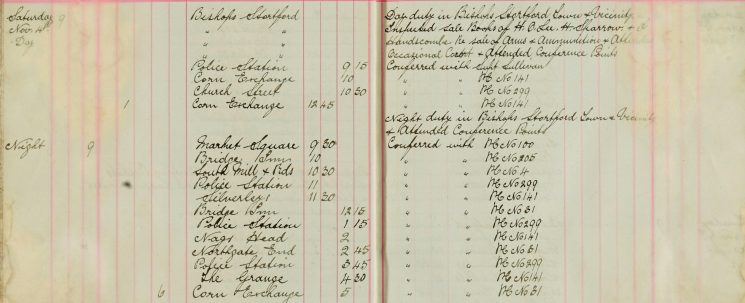 Saturday 9 Bishops Stortford Day duty in Bishops Stortford Town & Vicinity
Nov 4th " Inspected Sale Books of H. H. Sharrow &
Day " Handscombs re sale of Arms & Ammunition &
" Occasional Court & Attended Conference Points
Police Station 9 15 Conferred with Supt Sullivan
Corn Exchange 10 " " PC No 141
Church Street 10 30 " " PC No 299
1 Corn Exchange 12 45 " " PC No 141
Night duty in Bishops Stortford Town & Vicinity
& Attended Conference Points
Night 9 Market Square 9 30 Conferred with PC No 100
Bridge Inn 10 " " PC No 205
South Mill & Rds 10 30 " " PC No 4
Police Station 11 " " PC No 299
Silverleys 11 30 " " PC No 141
Bridge Inn 12 15 " " PC No 31
Police Station 1 15 " " PC No 299
Nags Head 2 " " PC No 141
Northgate End 2 45 " " PC No 31
Police Station 3 45 " " PC No 299
The Grange 4 30 " " PC No 141
6 Corn Exchange 5 " " PC No 31